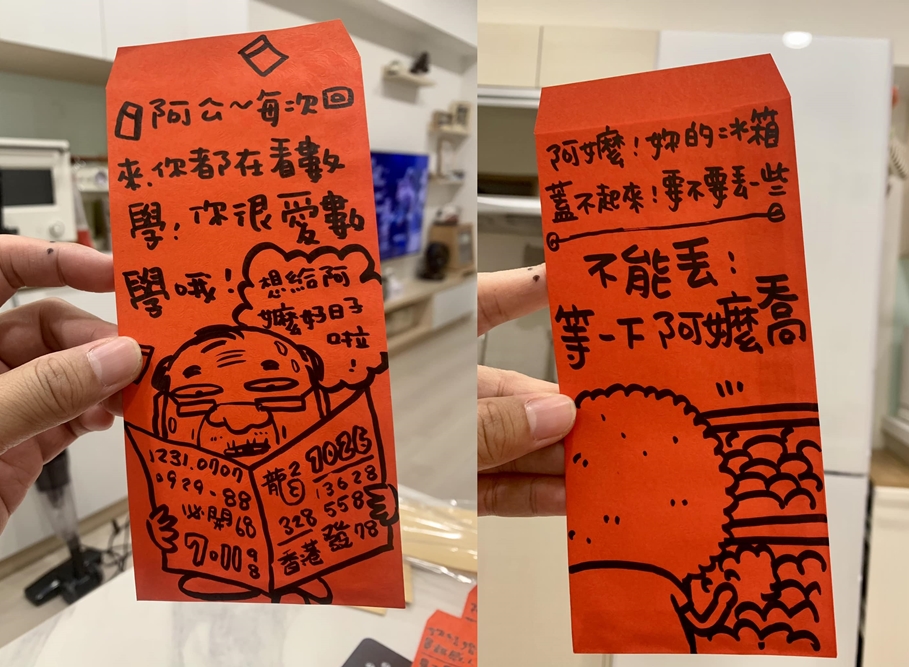 阿公~每次回
來,你都在看數
學!你很愛數
學哦!
想給阿
嬤好日子
啦!
1231.0707
0929-88
必開68
7.011
98
龍2
7026
13628
328
558
香港發78
阿嬤!妳的冰箱
蓋不起來!要不要丟一些
不能丟!
等一下阿嬤喬